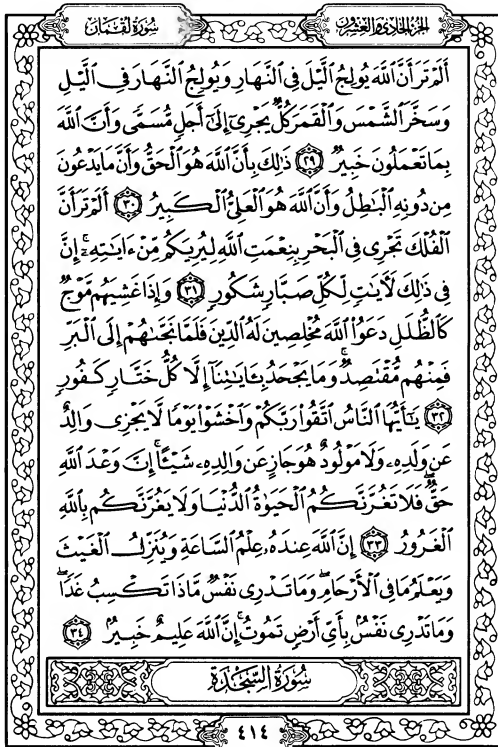 سُورَةُ لُقۡمَانَ
الجُزۡءُ الحَادِي وَالعِشۡرُونَ
أَلَمۡ تَرَ أَنَّ ٱللَّهَ يُولِجُ ٱلَّيۡلَ فِي ٱلنَّهَارِ وَيُولِجُ ٱلنَّهَارَ فِي ٱلَّيۡلِ
وَسَخَّرَ ٱلشَّمۡسَ وَٱلۡقَمَرَ كُلّٞ يَجۡرِيٓ إِلَىٰٓ أَجَلٖ مُّسَمّٗى وَأَنَّ ٱللَّهَ
بِمَا تَعۡمَلُونَ خَبِيرٞ ٢٩ ذَٰلِكَ بِأَنَّ ٱللَّهَ هُوَ ٱلۡحَقُّ وَأَنَّ مَا يَدۡعُونَ
مِن دُونِهِ ٱلۡبَٰطِلُ وَأَنَّ ٱللَّهَ هُوَ ٱلۡعَلِيُّ ٱلۡكَبِيرُ ٣٠ أَلَمۡ تَرَ أَنَّ
ٱلۡفُلۡكَ تَجۡرِي فِي ٱلۡبَحۡرِ بِنِعۡمَتِ ٱللَّهِ لِيُرِيَكُم مِّنۡ ءَايَٰتِهِۦٓۚ إِنَّ
فِي ذَٰلِكَ لَأٓيَٰتٖ لِّكُلِّ صَبَّارٖ شَكُورٖ ٣١ وَإِذَا غَشِيَهُم مَّوۡجٞ
كَٱلظُّلَلِ دَعَوُاْ ٱللَّهَ مُخۡلِصِينَ لَهُ ٱلدِّينَ فَلَمَّا نَجَّىٰهُمۡ إِلَى ٱلۡبَرِّ
فَمِنۡهُم مُّقۡتَصِدٞۚ وَمَا يَجۡحَدُ بِـَٔايَٰتِنَآ إِلَّا كُلُّ خَتَّارٖ كَفُورٖ
٣٢ يَٰٓأَيُّهَا ٱلنَّاسُ ٱتَّقُواْ رَبَّكُمۡ وَٱخۡشَوۡاْ يَوۡمٗا لَّا يَجۡزِي وَالِدٌ
عَن وَلَدِهِۦ وَلَا مَوۡلُودٌ هُوَ جَازٍ عَن وَالِدِهِۦ شَيۡـًٔاۚ إِنَّ وَعۡدَ ٱللَّهِ
حَقّٞۖ فَلَا تَغُرَّنَّكُمُ ٱلۡحَيَوٰةُ ٱلدُّنۡيَا وَلَا يَغُرَّنَّكُم بِٱللَّهِ
ٱلۡغَرُورُ ٣٣ إِنَّ ٱللَّهَ عِندَهُۥ عِلۡمُ ٱلسَّاعَةِ وَيُنَزِّلُ ٱلۡغَيۡثَ
وَيَعۡلَمُ مَا فِي ٱلۡأَرۡحَامِۖ وَمَا تَدۡرِي نَفۡسٞ مَّاذَا تَكۡسِبُ غَدٗاۖ
وَمَا تَدۡرِي نَفۡسُۢ بِأَيِّ أَرۡضٖ تَمُوتُۚ إِنَّ ٱللَّهَ عَلِيمٌ خَبِيرُۢ ٣٤
سُورَةُ السَّجۡدَةِ
٤١٤